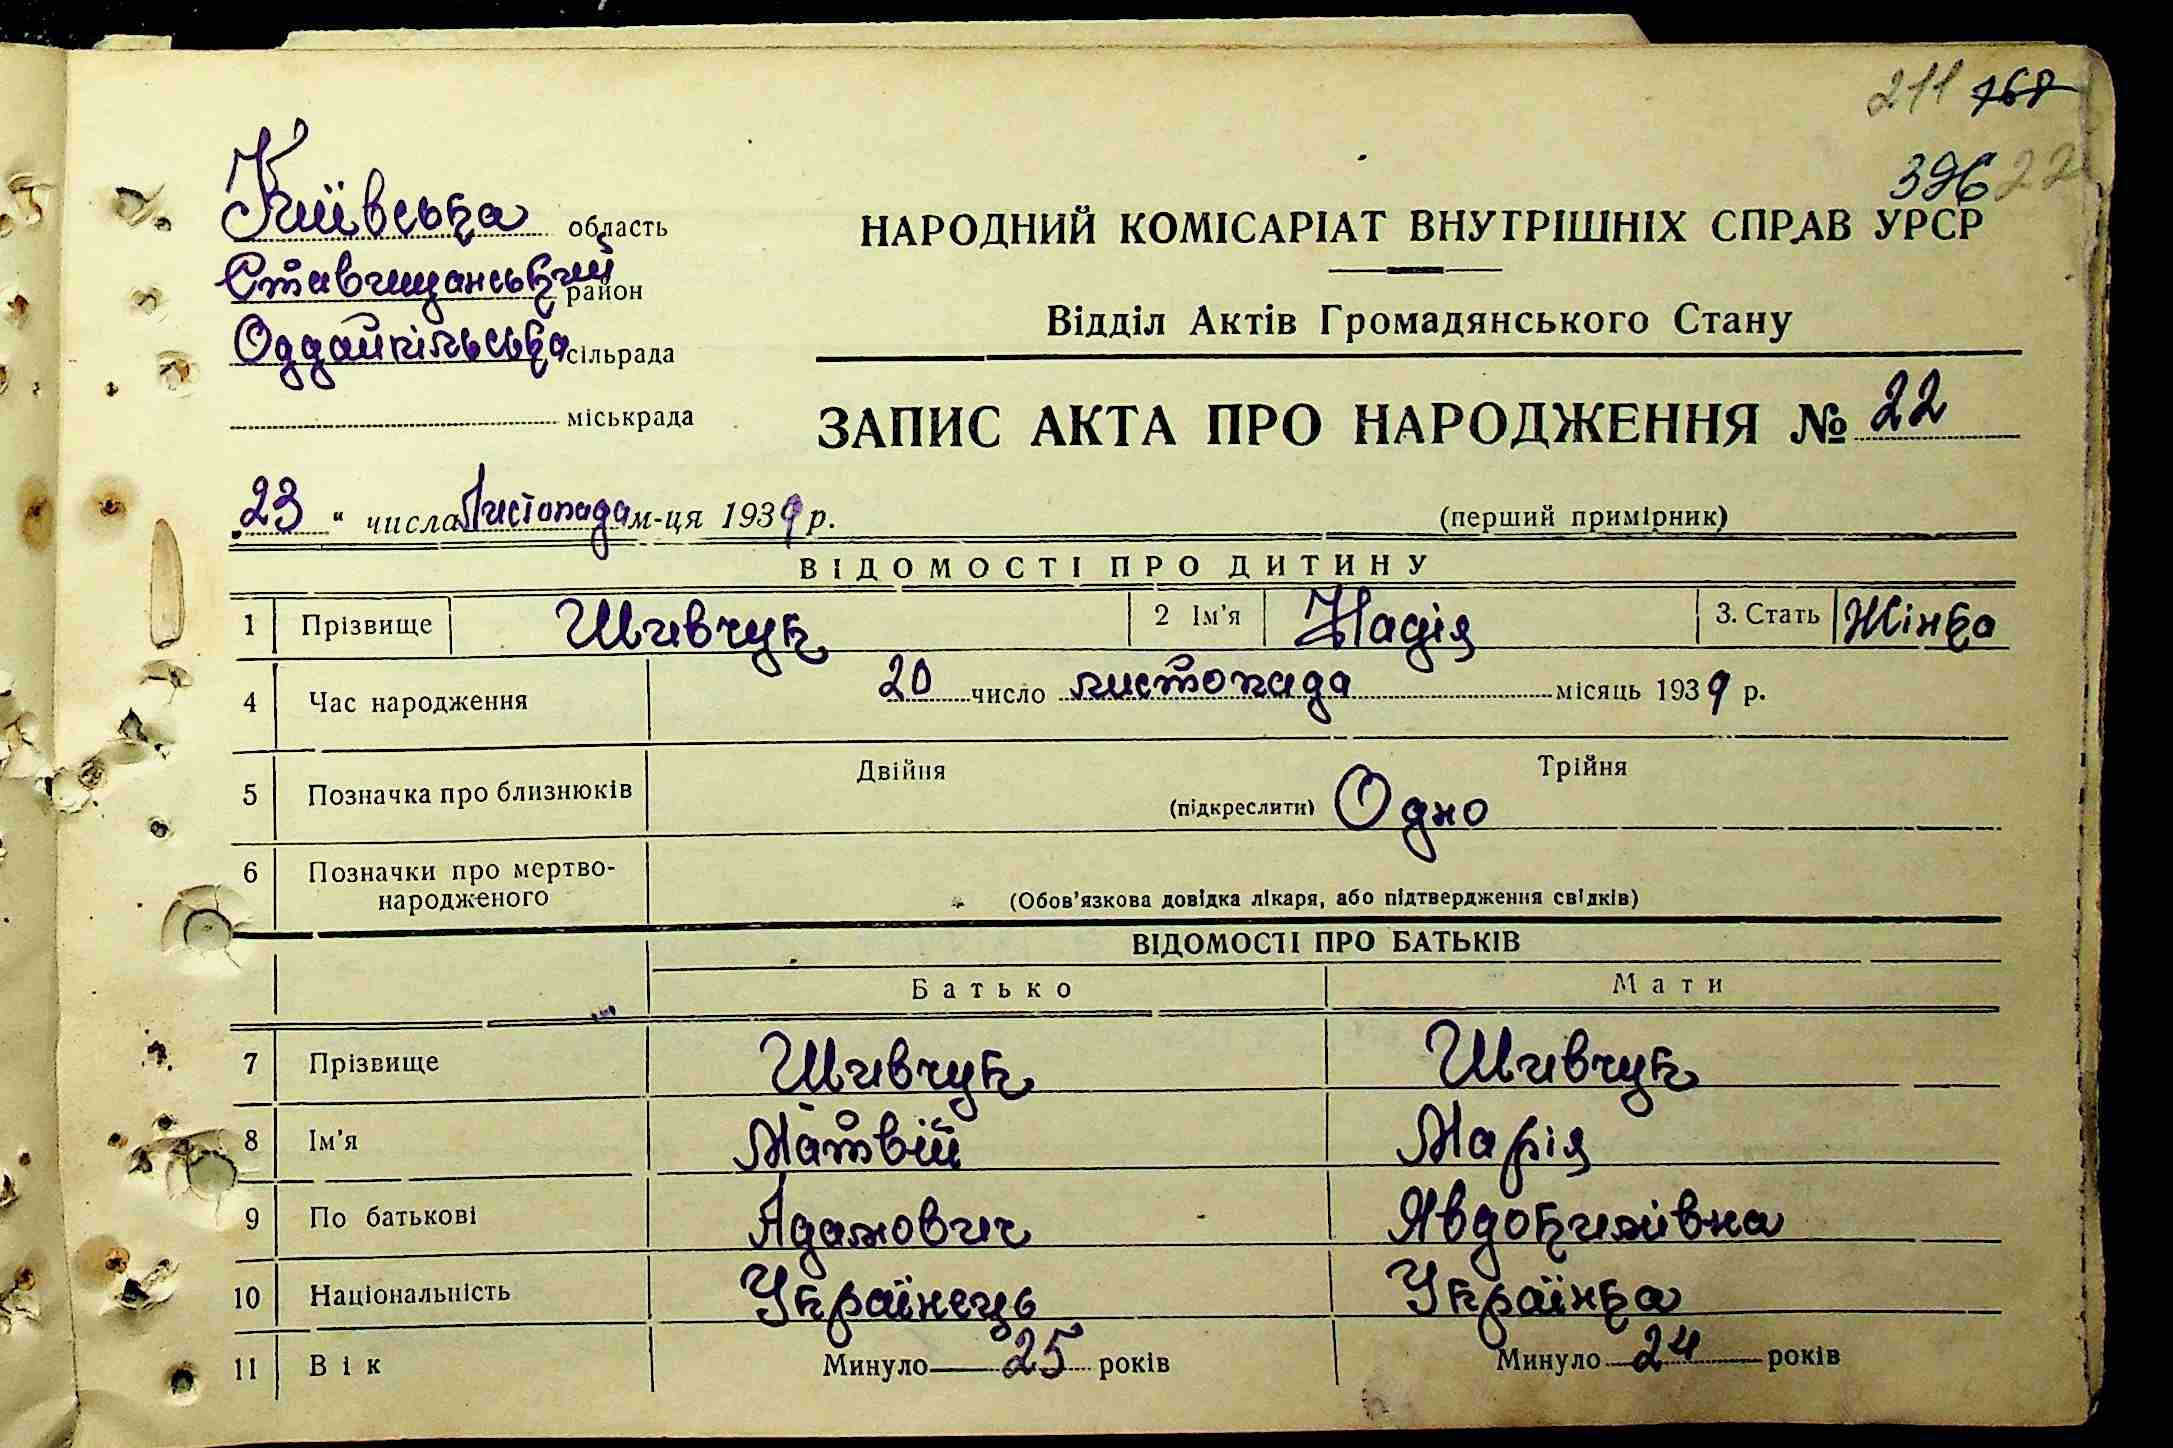 211 768
396 22
Київська область
Ставищанський район
Оддайпільська сільрада
міськрада
НАРОДНИЙ КОМІСАРІАТ ВНУТРІШНІХ СПРАВ УРСР
Відділ Актів Громадянського Стану
ЗАПИС АКТА ПРО НАРОДЖЕННЯ № 22
„23“ числа Листопада м-ця 1939 р.
(перший примірник)
ВІДОМОСТІ ПРО ДИТИНУ
1 Прізвище Шивчук 2 Ім'я Надія 3. Стать Жінка
4 Час народження 20 число листопада місяць 1939 р.
5 Позначка про близнюків Двійня Трійня
(підкреслити) Одно
6 Позначки про мертво-
народженого (Обов'язкова довідка лікаря, або підтвердження свідків)
ВІДОМОСТІ ПРО БАТЬКІВ
Батько Мати
7 Прізвище Шивчук Шивчук
8 Ім'я Матвій Марія
9 По батькові Адамович Явдокимівна
10 Національність Українець Українка
11 Вік Минуло 25 років Минуло 24 років